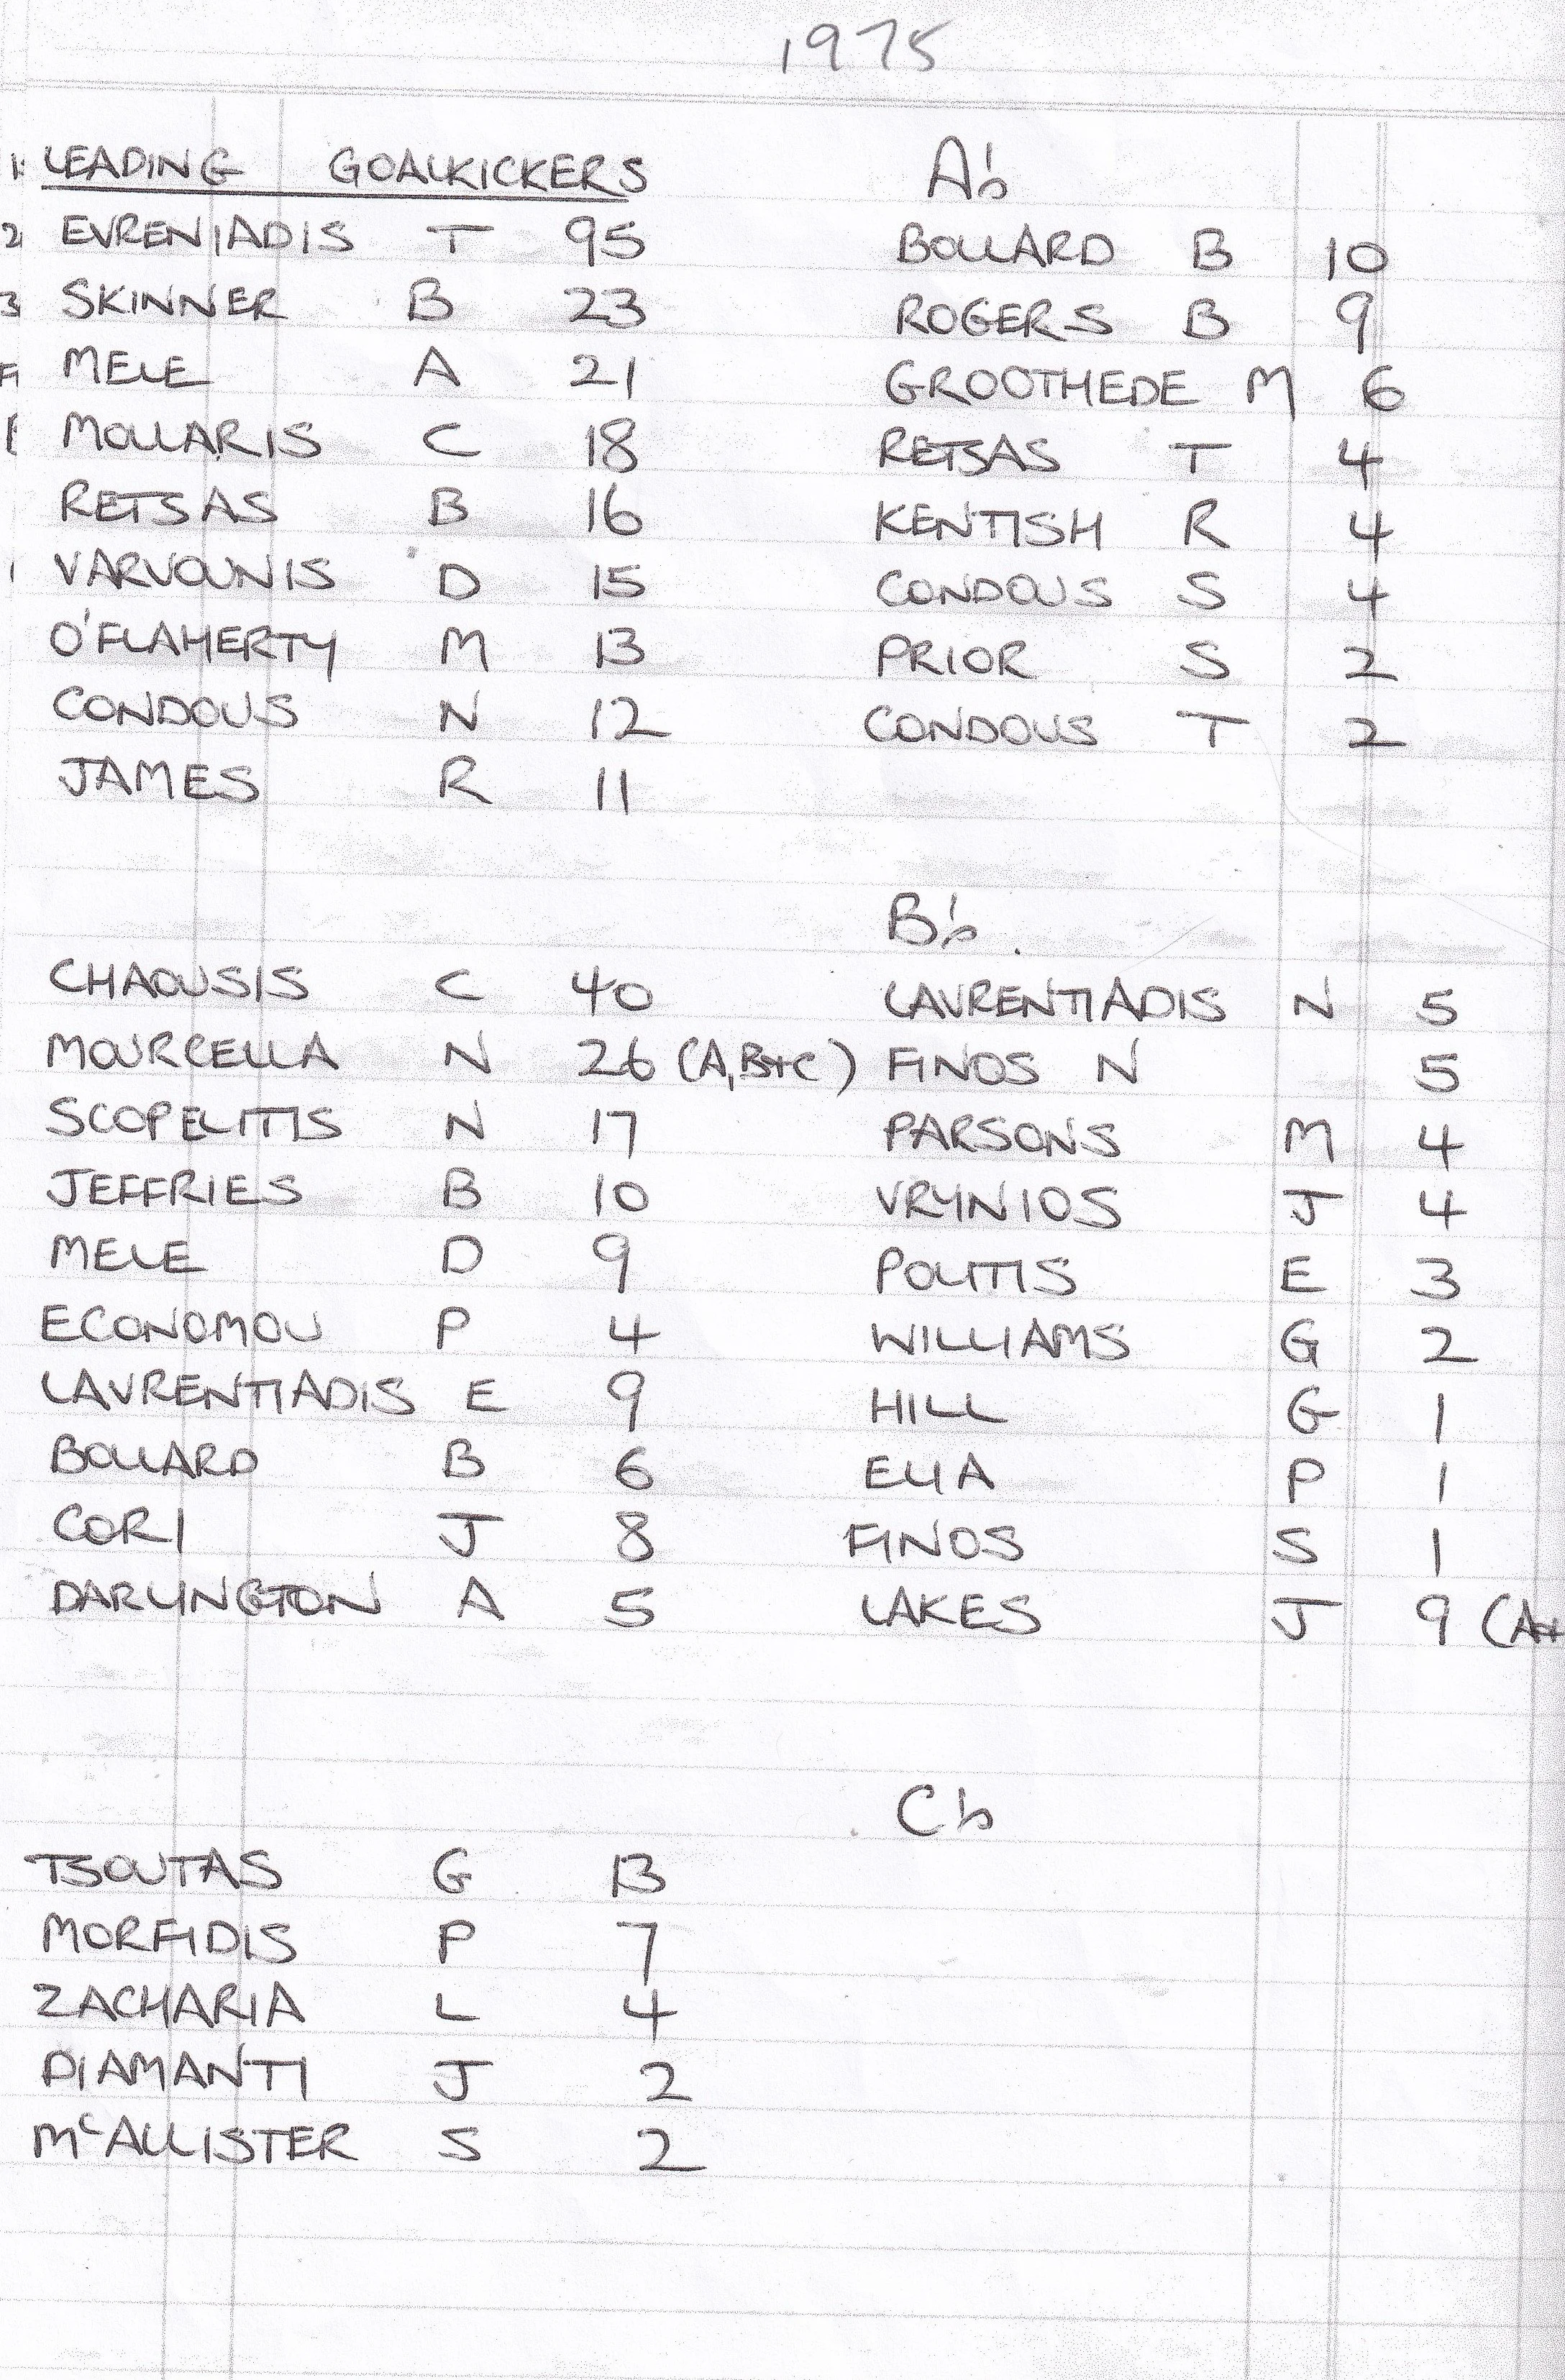 1975
LEADING GOALKICKERS A's
EVRENIADIS T 95 BOLLARD B 10
SKINNER B 23 ROGERS B 9
MELE A 21 GROOTHEDE M 6
MOLLARIS C 18 RETSAS T 4
RETSAS B 16 KENTISH R 4
VARVOUNIS D 15 CONDOUS S 4
O'FLAHERTY M 13 PRIOR S 2
CONDOUS N 12 CONDOUS T 2
JAMES R 11
B's
CHAOUSIS C 40 LAVRENTIADIS N 5
MOURCELLA N 26 (A,B+C) FINOS N 5
SCOPELITIS N 17 PARSONS M 4
JEFFRIES B 10 VRYNIOS J 4
MELE D 9 POLITIS E 3
ECONOMOU P 4 WILLIAMS G 2
LAVRENTIADIS E 9 HILL G 1
BOLLARD B 6 ELIA P 1
CORI J 8 FINOS S 1
DARLINGTON A 5 LAKES J 9 (A+
Cs
TSOUTAS G 13
MORFIDIS P 7
ZACHARIA L 4
DIAMANTI J 2
McALLISTER S 2